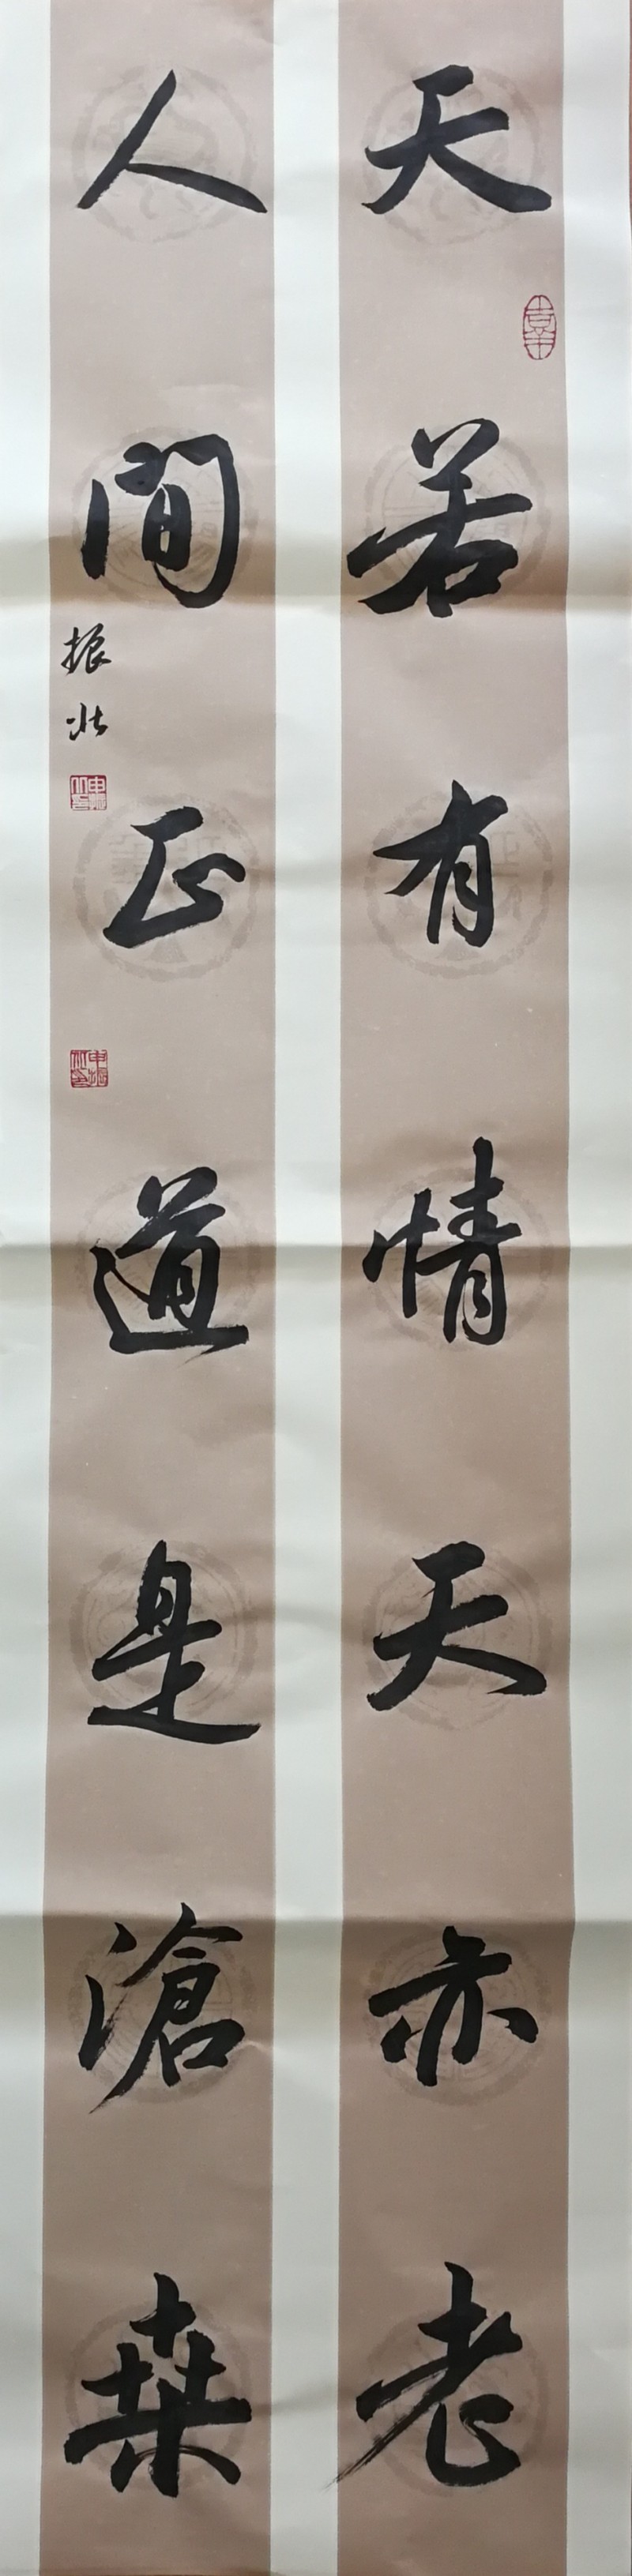 天若有情天亦老
人間正道是滄桒
振北